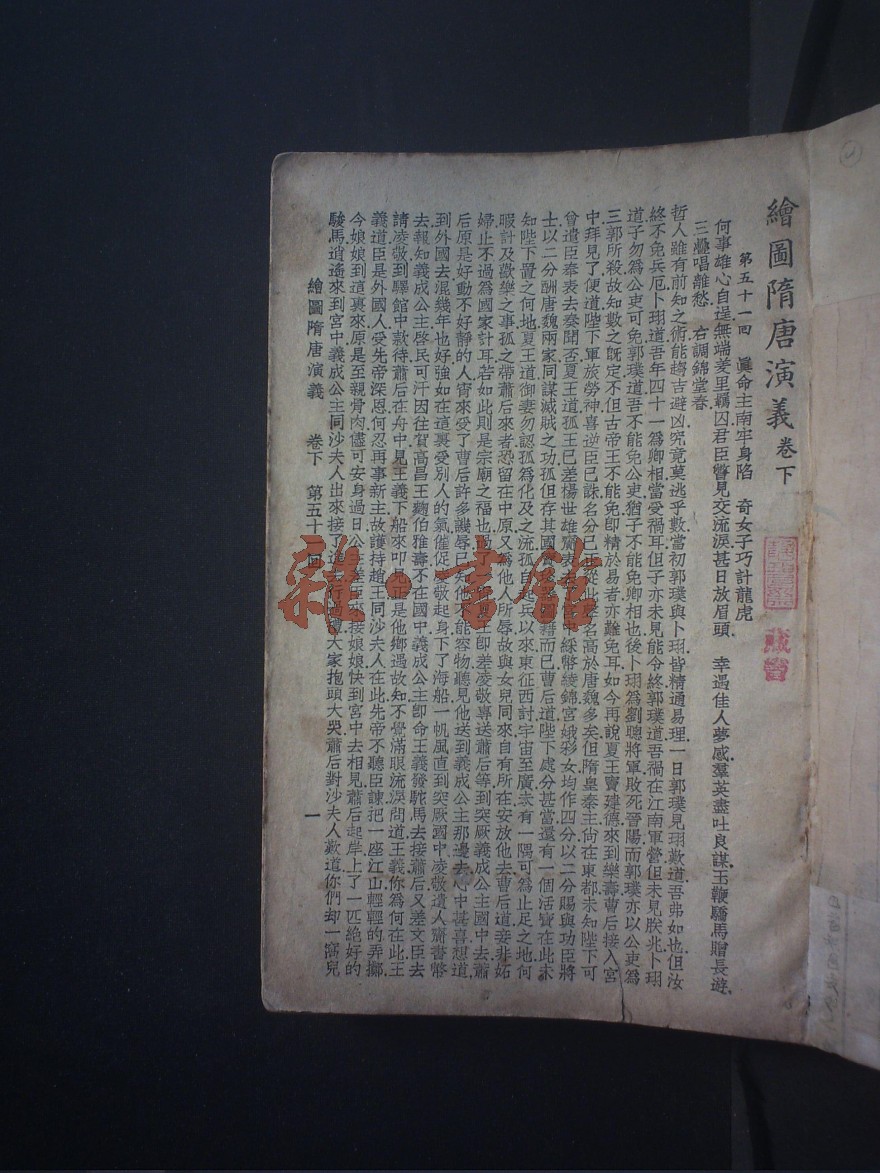 繪圖隋唐演義卷下
第五十一回　眞命主南牢身陷　奇女子巧計龍虎
何事雄心自逞無端羑里羈囚君臣瞥見交流淚甚日放眉頭　幸遇佳人夢感羣英盡吐良謀玉鞭驕馬贈長遊
三疊唱離愁　右調錦堂春
哲人雖有前知之術能趨吉避凶究竟莫逃乎數當初郭璞與卜珝皆精通易理一日郭璞見珝歎道吾弗如也但汝
終不免兵厄卜珝道吾年四十一爲卿相當受禍耳但子亦未見能令終郭璞道吾禍在江南軍營但未見朕兆卜珝
道子勿爲公吏可免郭璞道吾不能免公吏猶子不能免卿相也後卜珝爲劉聰將軍敗死晉陽而郭璞亦以公吏爲
三郭所殺故知數之旣定不但古帝王不能免卽精於易者亦難免耳如今再說夏王竇建德來到樂壽曹后接入宮
中拜見了便道陛下軍旅勞神喜逆臣已誅名分已正從此聲名高於唐魏多矣但隋皇泰主尙在東都未知陛下可
曾遣臣奉表去奏聞否夏王道孤王已差楊世雄齎表去
中綵幣綾錦宮娥彩女均作四分以二分賜與功臣將
士以二分酬唐魏兩家同謀滅賊之功孤但存其國
籍而已曹后道陛下處分甚當還有一個活寶在此未
知陛下置之何地夏王道御妻勿認孤爲化及之流孤自
兵以來東征西討宇宙至廣未有一隅可爲止足之地何
暇計及歡樂之事孤之帶蕭后來者恐留在中原又爲他人所辱故與女兒同來自有所在安放他去曹后道妾非妬
婦止不過爲國家計耳若如此則是宗廟之福也
夏王卽差凌敬專送蕭后等到突厥義成公主國中去蕭
后原是好動不好靜的人甯來受了曹后許多譏辱已知他不能容物聽見他送到義成公主那邊去心中甚喜想道
到外國去混幾年也好強如在這裏受別人的氣催促
敬起身下了海船一帆風直到突厥國中凌敬遣人齎書幣
去報知義成公主啓民可汗因往賀高昌王麴伯雅壽不在國中義成公主卽命王義發駝馬去接蕭后又差文臣去
請凌敬到驛館中款待蕭后在舟中見王義下船來叩見正是他鄉遇故知不覺滿眼流淚問道王義你爲何在此王
義道臣是外國人受先帝深恩何忍再事新主故護持趙王同沙夫人在此先帝不聽臣諫把一座江山輕輕的弄擲
今娘娘到這裏來原是至親骨肉儘可安身過日公主
臣來接娘娘快到宮中去相見蕭后起岸上了一匹絕好的
駿馬逍遙來到宮中義成公主同沙夫人出來接
大家抱頭大哭蕭后對沙夫人歎道你們却一窩兒
繪圖隋唐演義　卷下　第五十一回　一
藏書
雜·書館